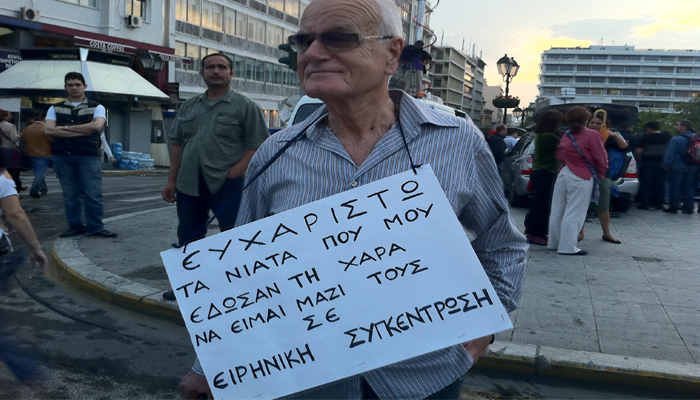 COSTA COFFEE
ΕΥΧΑΡΙΣΤΩ
ΤΑ ΝΙΑΤΑ ΠΟΥ ΜΟΥ
ΕΔΩΣΑΝ ΤΗ ΧΑΡΑ
ΝΑ ΕΙΜΑΙ ΜΑΖΙ ΤΟΥΣ
ΣΕ
ΕΙΡΗΝΙΚΗ ΣΥΓΚΕΝΤΡΩΣΗ